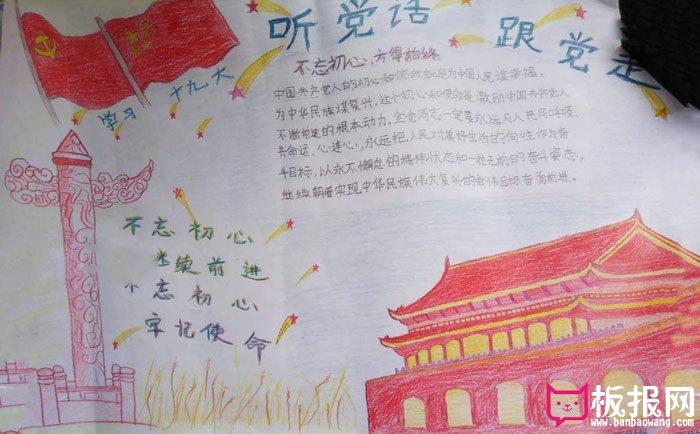 听党话 跟党走
学习 十九大
不忘初心,方得始终
中国共产党人的初心和使命就是为中国人民谋幸福,
为中华民族谋复兴,这个初心和使命是激励中国共产党人
不断前进的根本动力,全党同志一定要永远与人民同呼吸、
共命运、心连心,永远把人民对美好生活的向往作为奋
斗目标,以永不懈怠的精神状态和一往无前的奋斗姿态,
继续朝着实现中华民族伟大复兴的宏伟目标奋勇前进。
不忘初心
继续前进
不忘初心
牢记使命
板报网
www.banbaowang.com